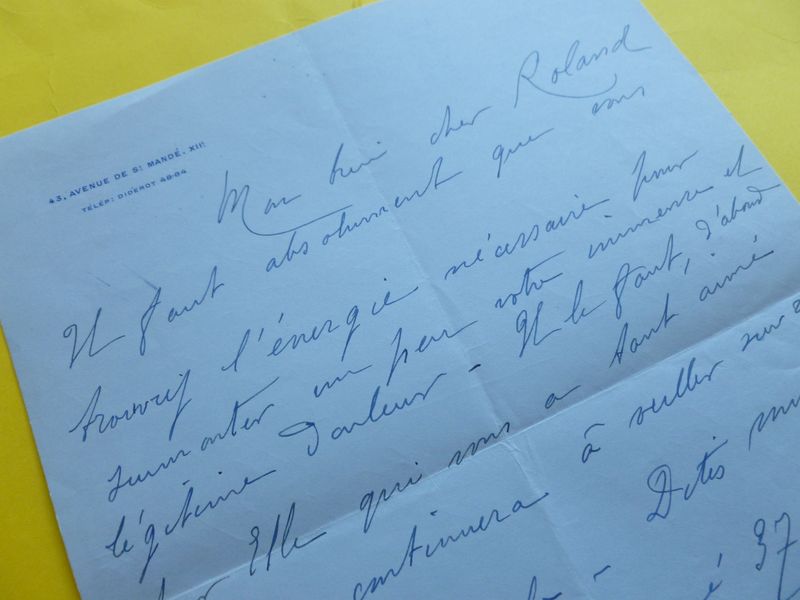 43, AVENUE DE ST MANDÉ. XIIE
TÉLÉP: DIDEROT 48-84
Mon bien cher Roland
Il faut absolument que vous
trouviez l'énergie nécessaire pour
surmonter un peu votre immense et
légitime douleur - Il le faut, d'abord
Elle qui vous a tant aimé
continuera à veiller sur
Dites
37